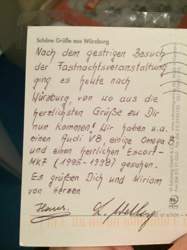 Schöne Grüße aus Würzburg
Nach dem gestrigen Besuch
der Fastnachtsveranstaltung
ging es heute nach
Würzburg, von wo aus die
herzlichsten Grüße zu Dir
nun kommen! Wir haben u.a.
einen Audi V8, einige Omega B
und einen herrlichen Escort-
MK7 (1995-1998) gesehen.
Es grüßen Dich und Miriam
von Herzen